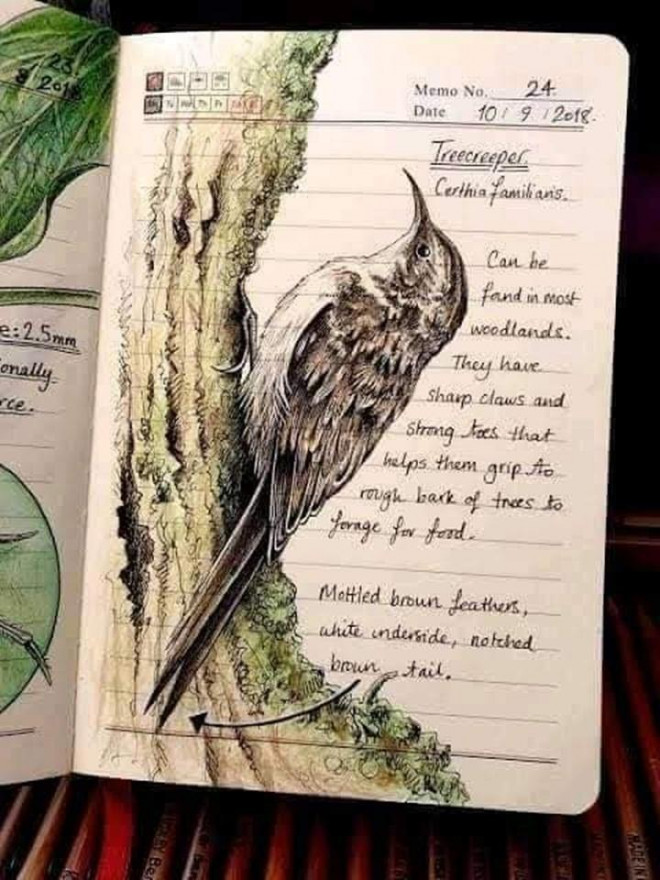 23.
8 / 2018
e: 2.5mm
onally
rce.
Memo No. 24.
Date 10 / 9 / 2018.
Treecreeper.
Certhia familiaris.
Can be
found in most
woodlands.
They have
sharp claws and
strong toes that
helps them grip to
rough bark of trees to
forage for food.
Mottled brown feathers,
white underside, notched
brown tail.